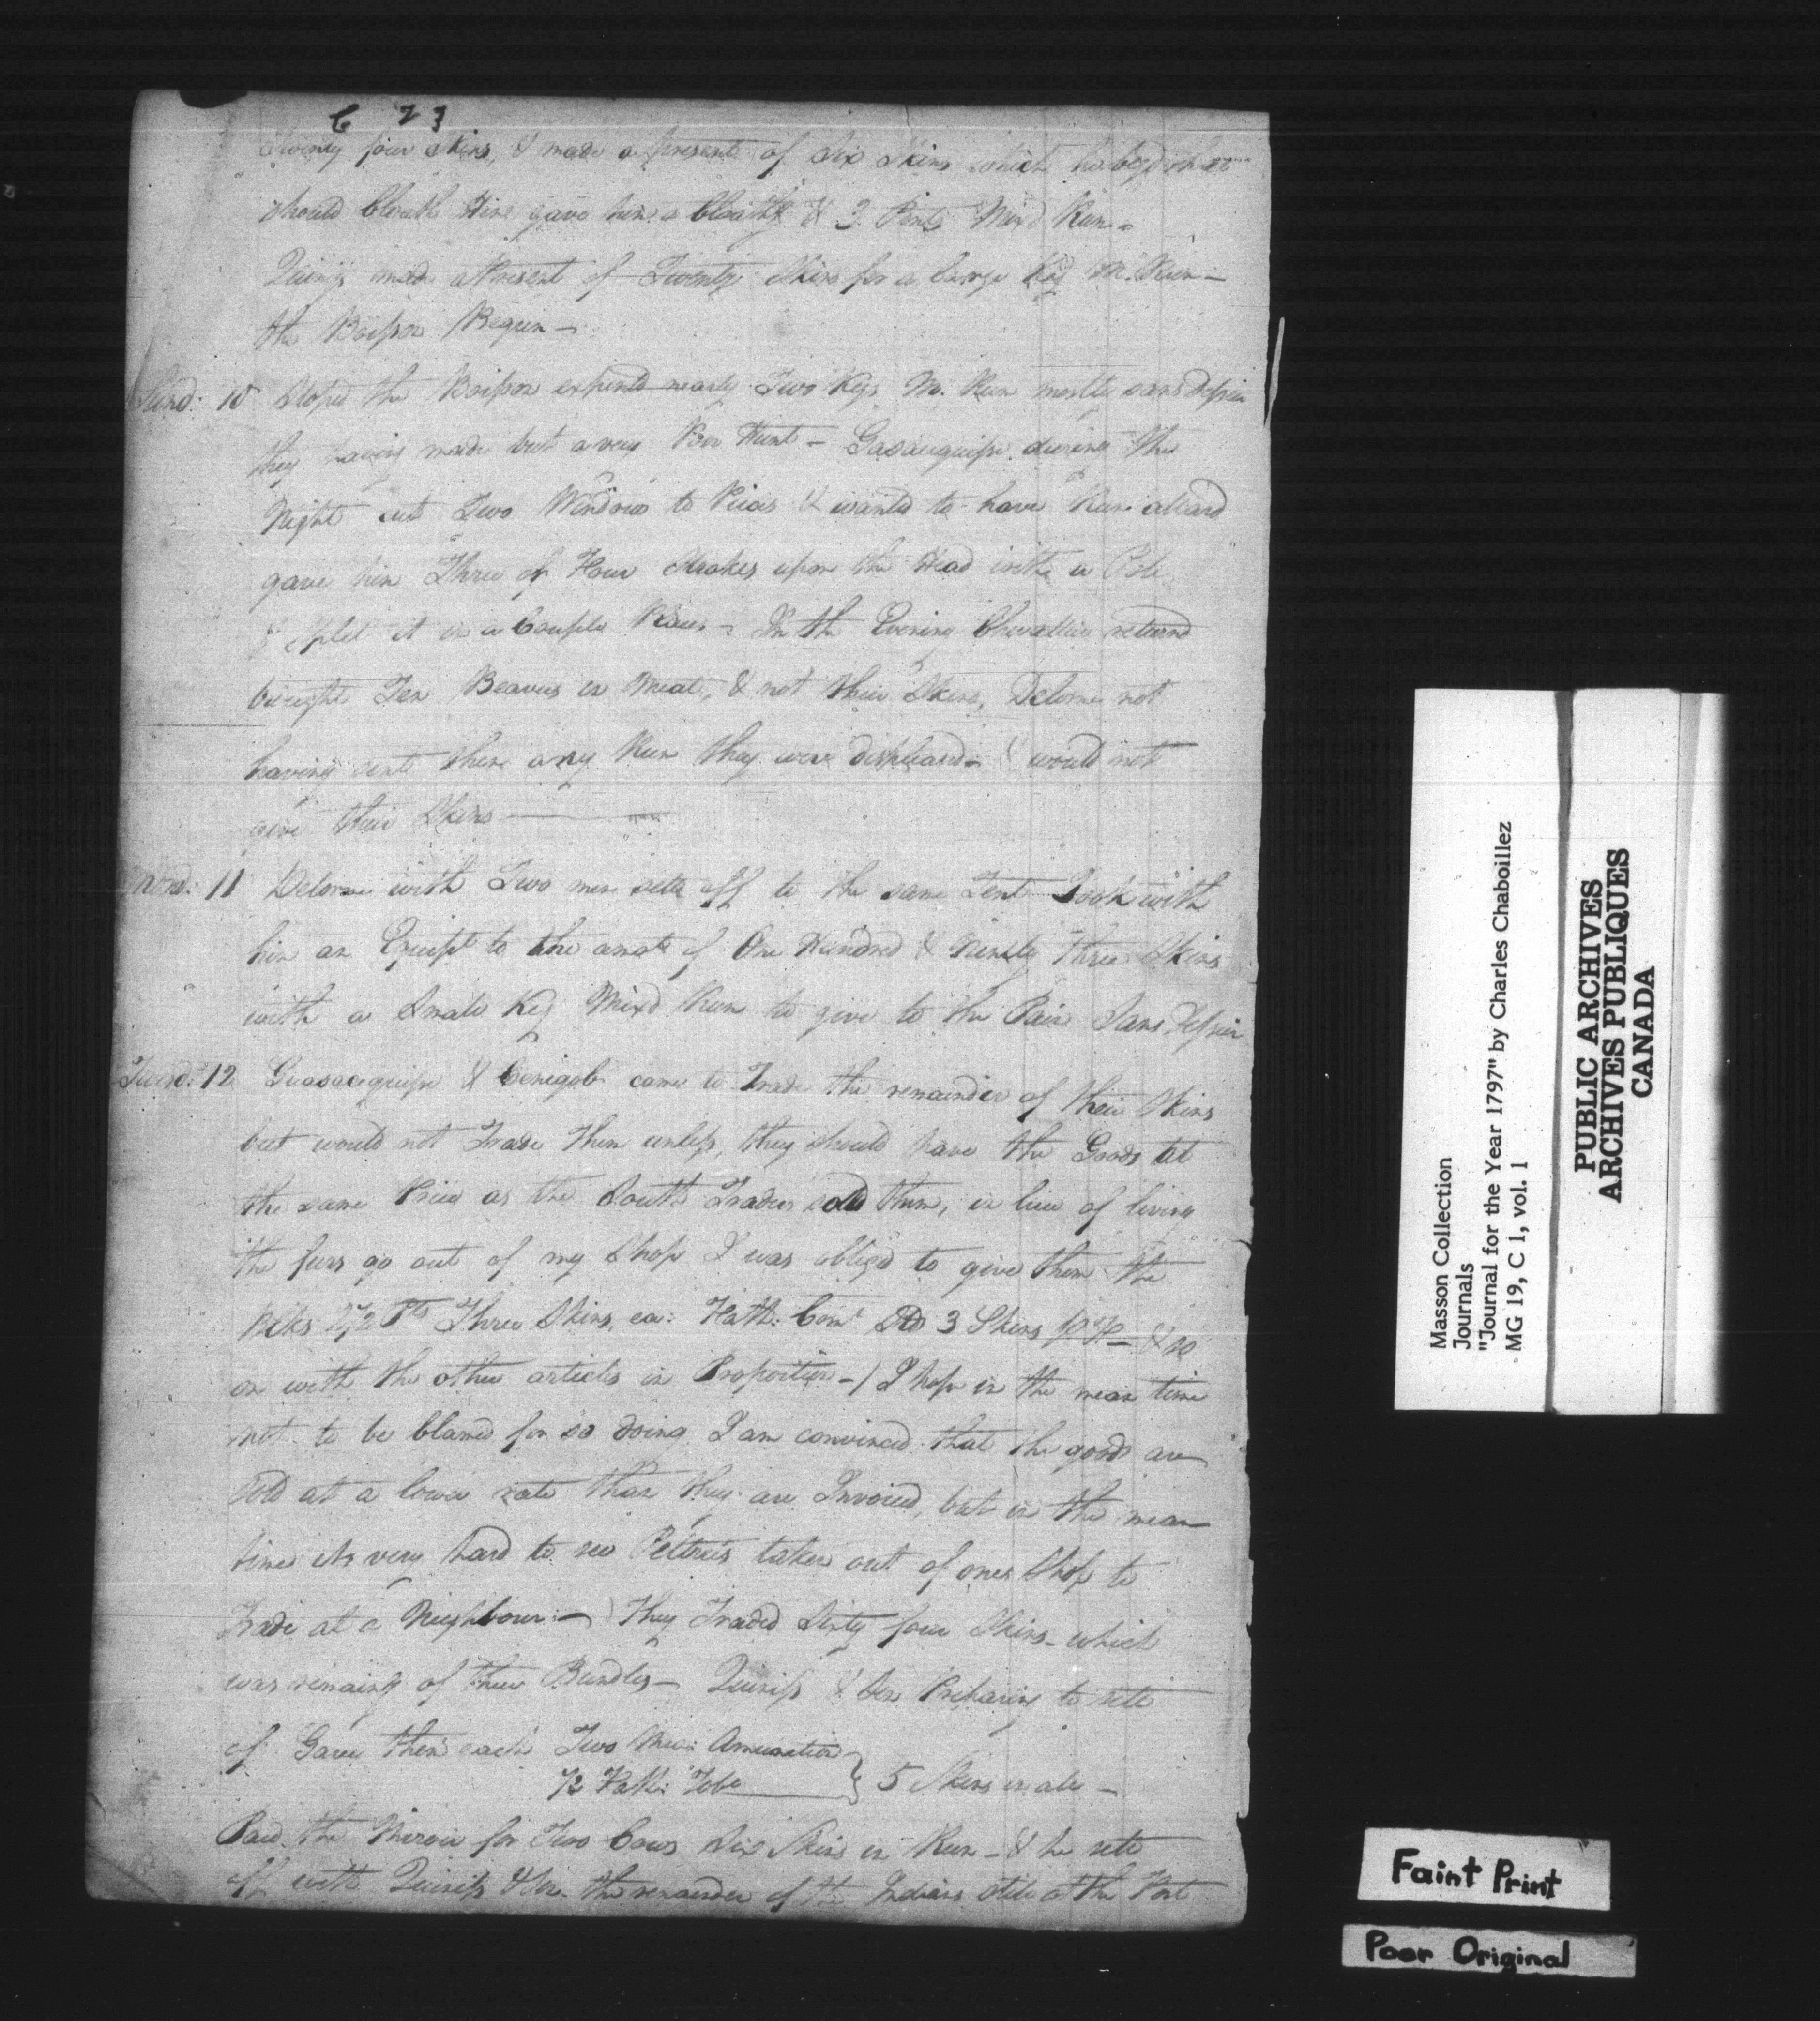 C 23
Twenty four Skins, & made a Present of Six Skins which he begd that I
should Cloath Him gave him a Cloathg & 3 Pints Mixd Rum -
Quinis made a Present of Twenty Skins for a large Keg M. Rum -
the Boisson Begun -
Sund: 10 Stoped the Boisson expend nearly Two Kegs M. Rum mostly sans Dessein
they having made but a very Poor Hunt - Gasauguisse during the
Night cut Two Windows to Pieces & wanted to have Rum allard
gave him Three of Four Strokes upon the Head with a Pole
& Split it in a Couple Pieces - In the Evening Chevallier returnd
brought Ten Beavers in Meat, & not their Skins, Delorme not
having sent them any Rum they were displeased & would not
give their Skins
Mond: 11 Delorme with Two men sett off to the same Tent Took with
him an Equipt to the amot of One Hundred & Ninety Three Skins
with a Small Keg Mixd Rum to give to the Pair Sans Dessein
Tuesd: 12 Guasacquisse & Cenigobe came to Trade the remainder of their Skins
but would not Trade Them unless, they should have the Goods at
the same Price as the South Traders sold them, in lieu of living
the furs go out of my Shop I was obligd to give them the
Blks 2½ Pts Three Skins, ea: Fath: Comt Std 3 Skins & so
on with the other articles in Proportion - / I hope in the mean time
not to be blamed for so doing I am convinced that the goods are
sold at a lower rate than they are Invoiced, but in the mean
time its very hard to see Peltries taken out of ones Shop to
Trade at a Neighbour :- ) They Traded Sixty four Skins - which
was remaing of their Bundles - Quiniss & Son Preparing to sett
of Gave them each Two Meas: Amunation
½ Fath: Tobo } 5 Skins in all -
Paid the Miroir for Two Cows Six Skins in Rum - & he sett
off with Quiniss & Son. the remainder of the Indians still at the Fort
Masson Collection
Journals
"Journal for the Year 1797" by Charles Chaboillez
MG 19, C 1, vol. 1
PUBLIC ARCHIVES
ARCHIVES PUBLIQUES
CANADA
Faint Print
Poor Original